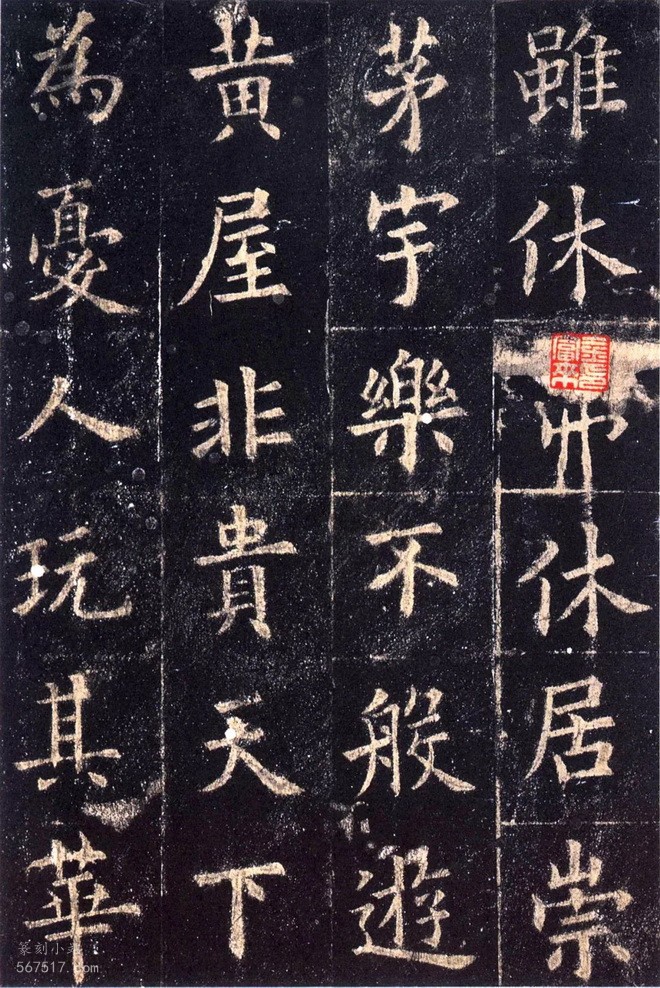 雖休休居崇
茅宇樂不般遊
黃屋非貴天下
為憂人玩其華
篆刻小
567517.com